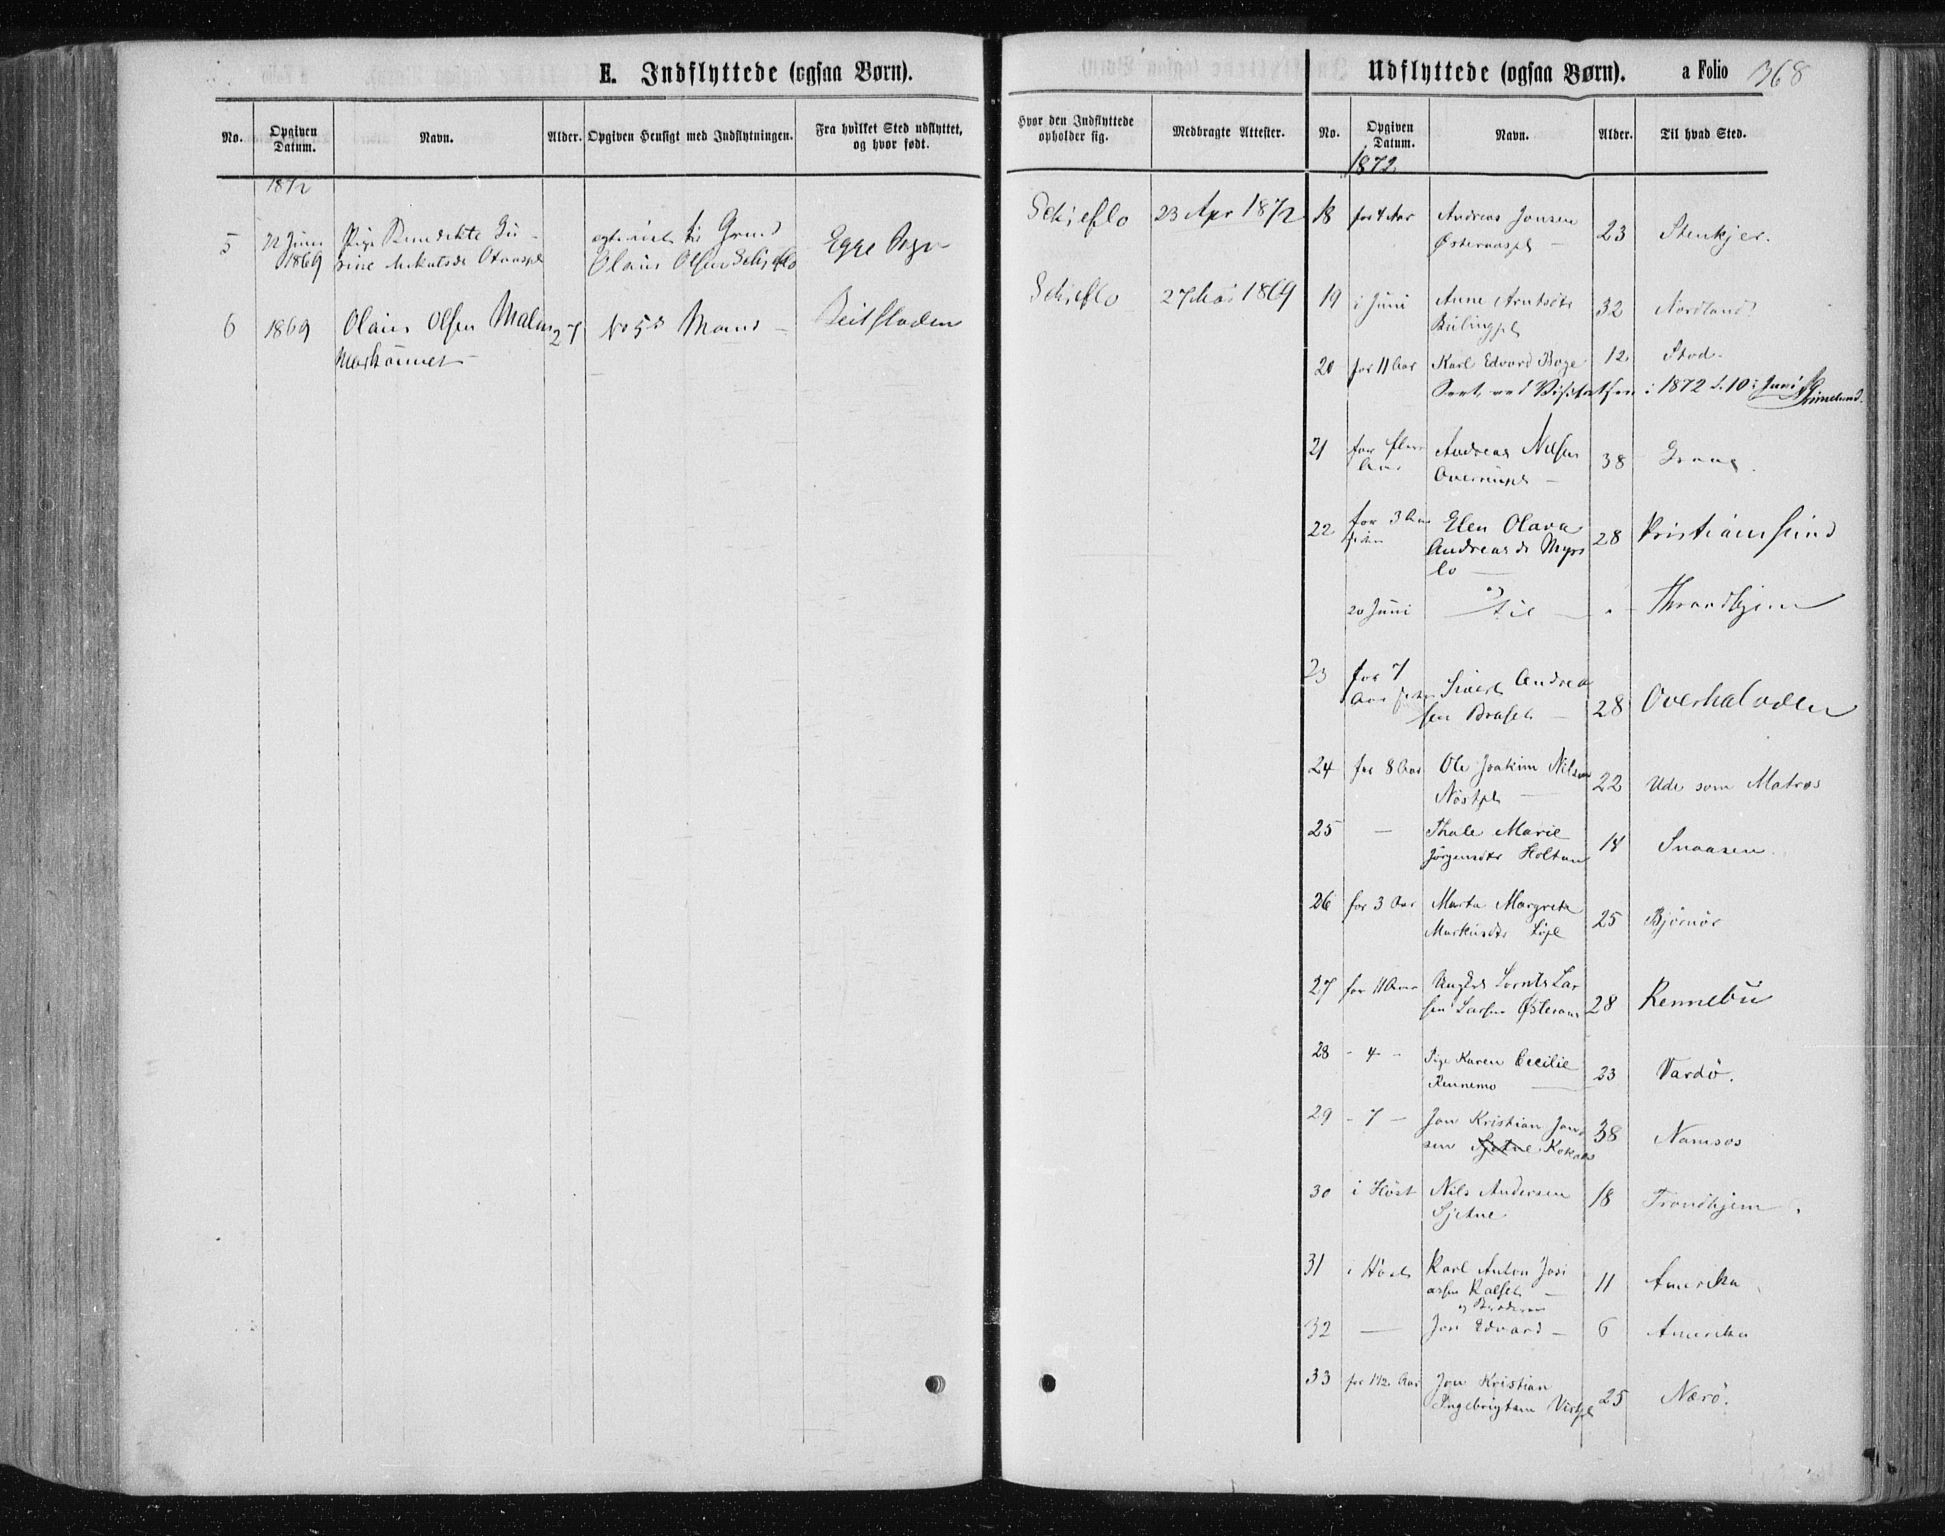 E. Indflyttede (ogsaa Børn).
No.
Opgiven Datum.
Navn.
Alder.
Opgiven Hensigt med Indflytningen.
Fra hvilket Sted udflyttet, og hvor født.
1872
5 12 Juni Pige Benedikte
1869
Olaus Olsen
Egge
6 1869 Olaus Olsen Malm 27 No 5s Mand Beitstaden
Hvor den Indflyttede opholder sig.
Medbragte Attester.
23 Apr 1872
27 Mai 1869
Udflyttede (ogsaa Børn).
a Folio 368
No.
Opgiven Datum.
Navn.
Alder.
Til hvad Sted.
1872
18 for 4 Aar Andreas Jonsen
Østeraaspl 23 Stenkjer.
19 i Juni Anne Arntsdtr
32 Nordland
20 for 11 Aar Karl Edvard Boge 12 Stod.
ved Visitatsen i 1872 d. 10 Juni Grimelund.
21 for flere Aar Andreas Nilsen
38 Grong.
22 for 3 Aar siden Elen Olava
Andreasdr Myrs
lo 28 Kristiansund
20 Juni til Throndhjem
23 for 7
Aar siden Sivert Andrea
sen Braset 28 Overhaldden
24 for 8 Aar Ole Joakim Nilsen
Nøstpl 22 Ude som Matros
25 — Thale Marie
Jørgensdtr Holtan 14 Snaasen
26 for 3 Aar Marta Margreta
Markusdtr 25 Bjørnør
27 for 11 Aar Ungkrl Lornts Lar
sen 28 Rennebu
28 - 4 - Pige Karen Cecilie
Rennemo 23 Vardø.
29 - 7 - Jon Kristian Jon
sen Sjetne 38 Namsos
30 i Høst Nils Andersen
Sjetne 18 Trondhjem
31 i Høst Karl Anton Josi
assen Kalset 11 Amerika
og Broderen
32 — Jon Edvard 6 Amerika
33 for 1½ Aar Jon Kristian
Ingebrigtsen 25 Nærø.